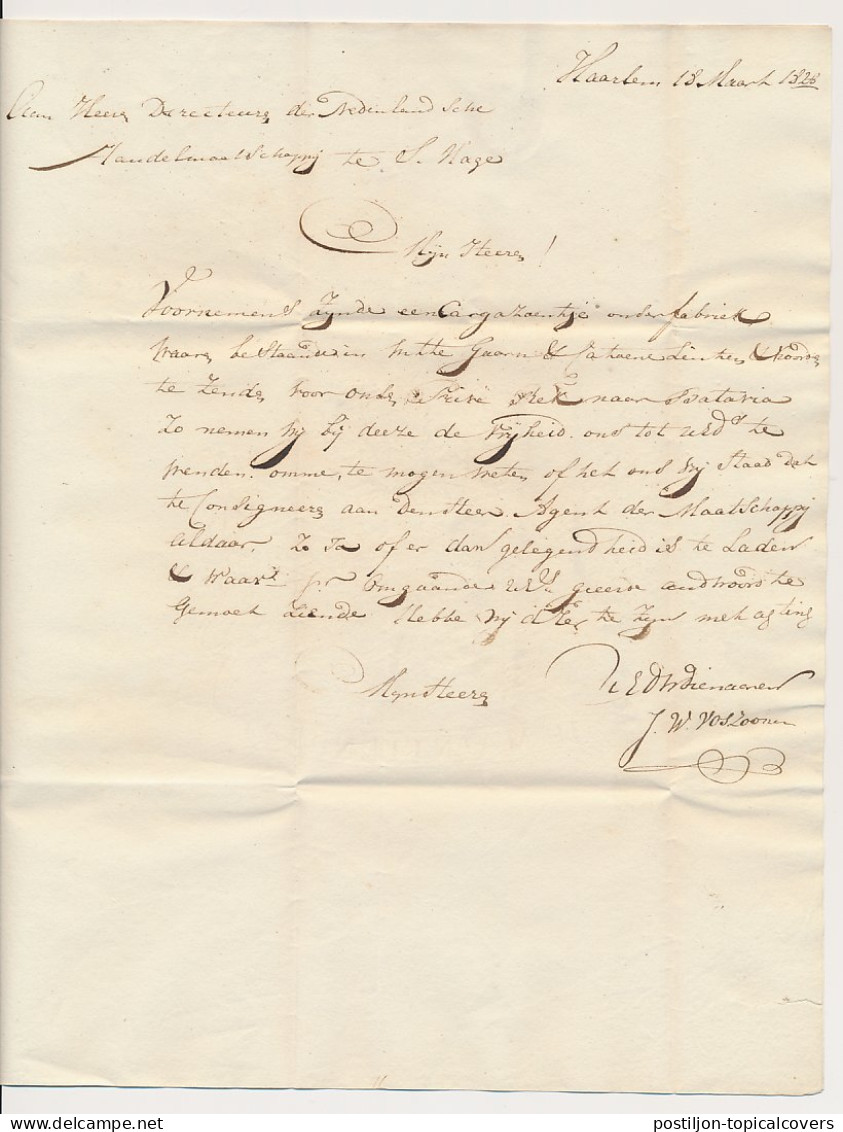 Haarlem 18 Maart 1828
Aan Heere Directeure der Nederlandsche
Handelmaatschappij te S. Hage
Mijn Heere!
Voornemens zynde een Cargazoentje onder fabriek
waare bestaande in witte Gaarn & Catoene Linten & Koorde
te zende voor onse
naar Batavia
Zo nemen wij bij deeze de vrijheid ons tot UEds te
wenden omme, te mogen wete of het ons vrij staad dat
te Consigneere aan den Heer Agent der Maatschappij
aldaar, Zo Ja of er dan gelegendheid is te Laden
& waar pr omgaande UEds geeive andwoord te
Gemoet ziende Hebbe wij d'Eer te zyn met agting
Myn Heere
UEDWDienaeren
J. W. Vos Zoonen
postiljon-topicalcovers